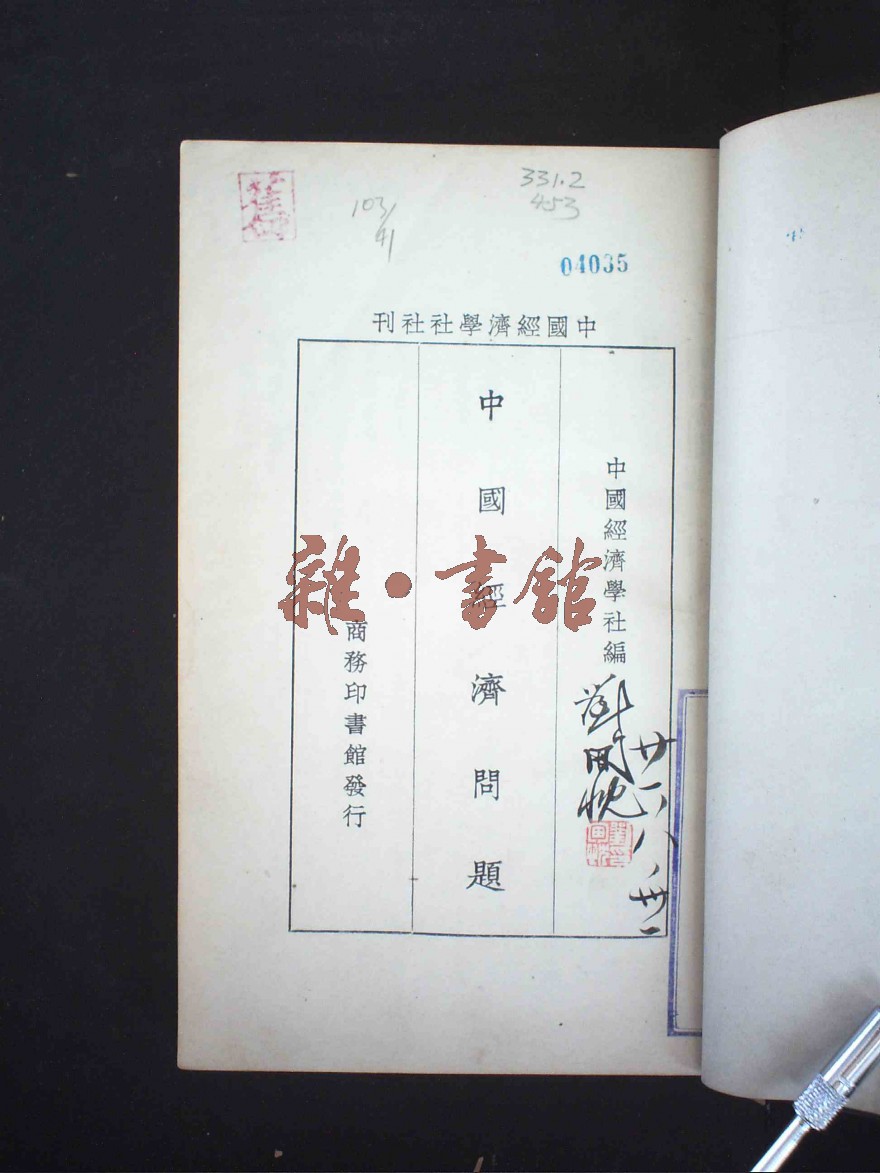 331.2
453
103/
41
04035
中國經濟學社社刊
中國經濟學社編
中國經濟問題
商務印書館發行
雜·書館
廿六八、卅一